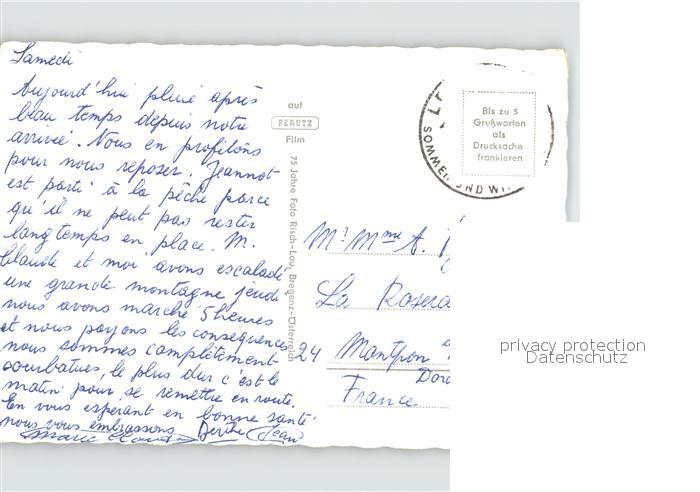 Samedi
Aujourd'hui pluie après
beau temps depuis notre
arrivée. Nous en profitons
pour nous reposer. Jeannot
est parti à la pêche parce
qu'il ne peut pas rester
longtemps en place. M.
Claude et moi avons escaladé
une grande montagne jeudi,
nous avons marché 5 heures
et nous payons les conséquences
nous sommes complètement
courbatues, le plus dur c'est le
matin pour se remettre en route.
En vous espérant en bonne santé
nous vous embrassons Berthe Jean
Marie Claude
auf
PERUTZ
Film
75 Jahre Foto Risch-Lau, Bregenz-Österreich
Bis zu 5
Grußworten
als
Drucksache
frankieren
SOMMER UND WI
Mr Mme A.
La Rosera
24 Montpon
Dord
France
privacy protection
Datenschutz